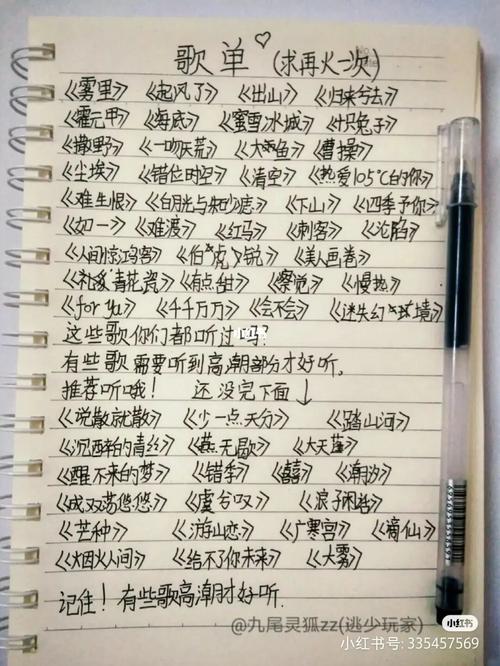 歌单♡(求再火一次)
《雾里》《起风了》《出山》《归来兮去》
《霍元甲》《海底》《蜜雪冰城》《十只兔子》
《撒野》《一吻天荒》《大鱼》《曹操》
《尘埃》《错位时空》《清空》《热爱105°C的你》
《难生恨》《白月光与朱砂痣》《下山》《四季予你》
《如一》《难渡》《红马》《刺客》《沦陷》
《人间惊鸿客》《伯虎说》《美人画卷》
《青花瓷》《有点甜》《察觉》《慢热》
《for ya》《千千万万》《会不会》《迷失幻境》
这些歌你们都听过吗?
有些歌需要听到高潮部分才好听。
推荐听哦! 还没完下面↓
《说散就散》《少一点天分》《踏山河》
《沉醉的青丝》《燕无歇》《大天蓬》
《醒不来的梦》《错季》《囍》《潮汐》
《成双荡悠悠》《虞兮叹》《浪子闲话》
《芒种》《游山恋》《广寒宫》《谪仙》
《烟火人间》《给不了你未来》《大雾》
记住! 有些歌高潮才好听.
@九尾灵狐zz(逃少玩家)
小红书
小红书号: 335457569